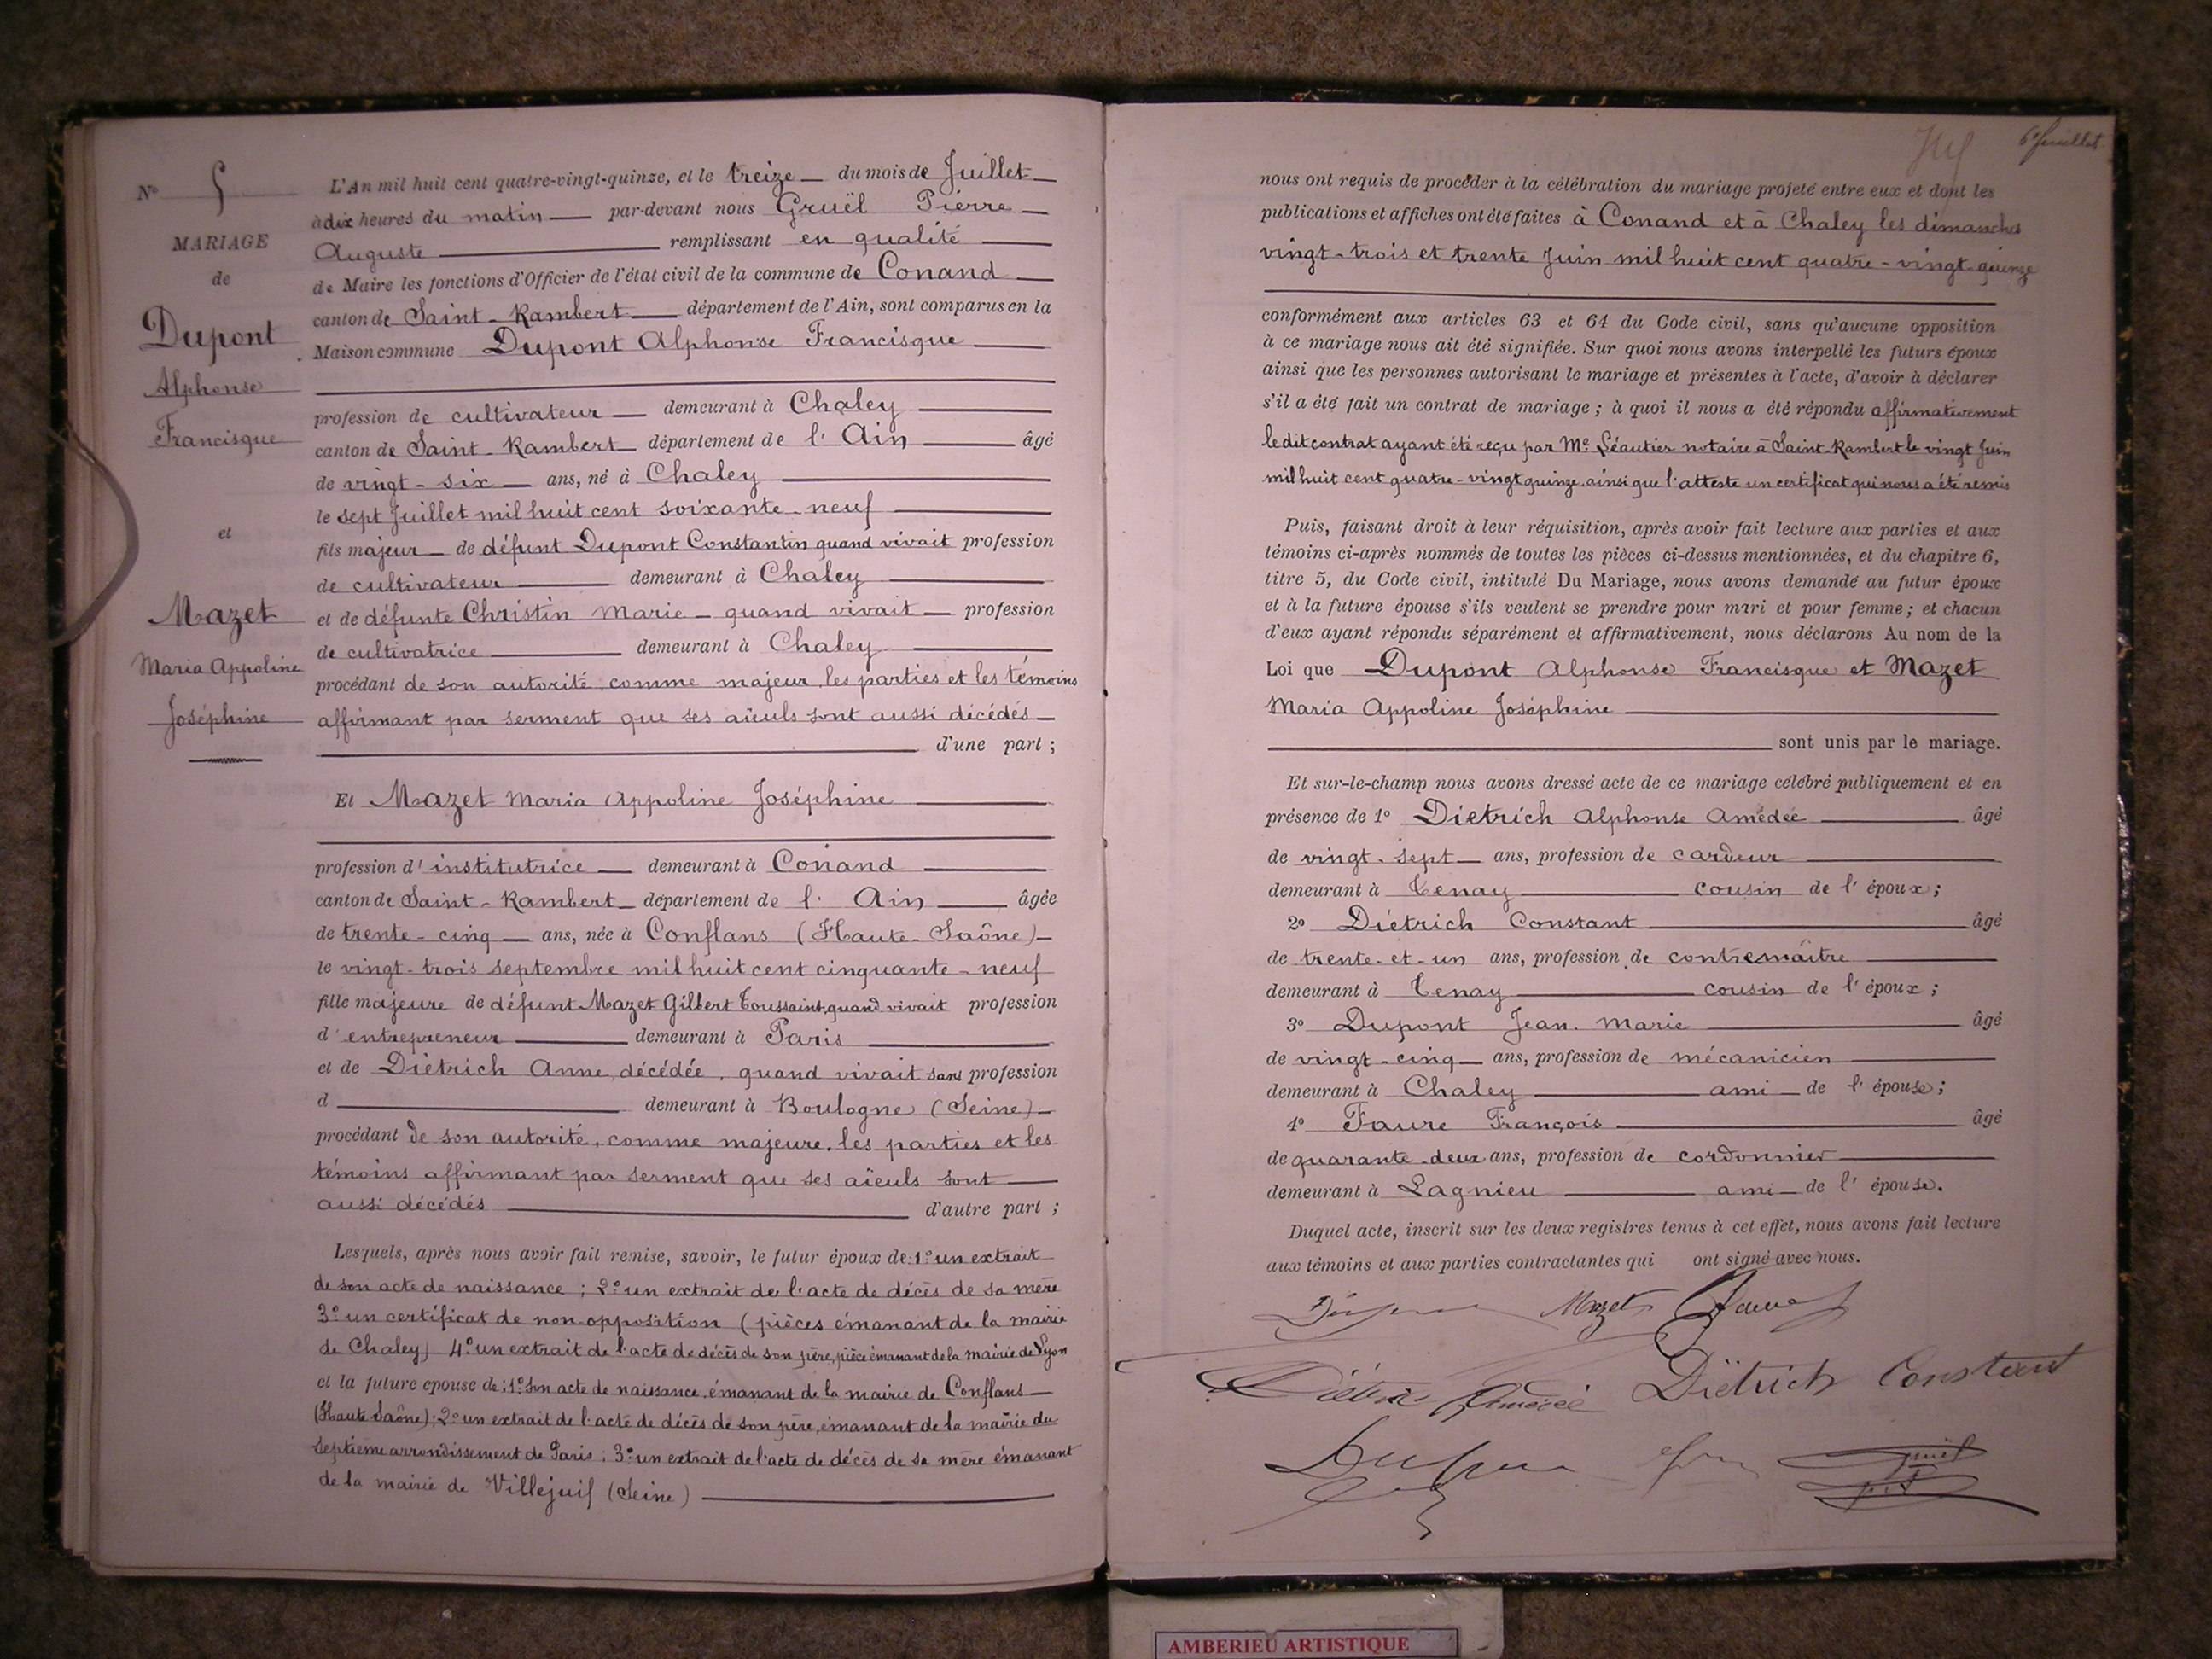 N° 5
MARIAGE
de
Dupont
Alphonse
Francisque
et
Mazet
Maria Appoline
Joséphine
L'An mil huit cent quatre-vingt-quinze, et le treize du mois de Juillet
à dix heures du matin par-devant nous Gruël Pierre
Auguste remplissant en qualité
de Maire les fonctions d'Officier de l'état civil de la commune de Conand
canton de Saint-Rambert département de l'Ain, sont comparus en la
Maison commune Dupont Alphonse Francisque
profession de cultivateur demeurant à Chaley
canton de Saint-Rambert département de l'Ain âgé
de vingt-six ans, né à Chaley
le sept Juillet mil huit cent soixante-neuf
fils majeur de défunt Dupont Constantin quand vivait profession
de cultivateur demeurant à Chaley
et de défunte Christin Marie quand vivait profession
de cultivatrice demeurant à Chaley
procédant de son autorité, comme majeur, les parties et les témoins
affirmant par serment que ses aïeuls sont aussi décédés
d'une part ;
Et Mazet Maria Appoline Joséphine
profession d'institutrice demeurant à Conand
canton de Saint-Rambert département de l'Ain âgée
de trente-cinq ans, née à Conflans (Haute-Saône)
le vingt-trois septembre mil huit cent cinquante-neuf
fille majeure de défunt Mazet Gilbert Toussaint, quand vivait profession
d'entrepreneur demeurant à Paris
et de Diétrich Anne, décédée, quand vivait sans profession
d demeurant à Boulogne (Seine)
procédant de son autorité, comme majeure, les parties et les
témoins affirmant par serment que ses aïeuls sont
aussi décédés d'autre part ;
Lesquels, après nous avoir fait remise, savoir, le futur époux de 1° un extrait
de son acte de naissance ; 2° un extrait de l'acte de décès de sa mère
3° un certificat de non-opposition (pièces émanant de la mairie
de Chaley) 4° un extrait de l'acte de décès de son père, pièce émanant de la mairie de Lyon
et la future épouse de : 1° son acte de naissance, émanant de la mairie de Conflans
(Haute Saône) ; 2° un extrait de l'acte de décès de son père, émanant de la mairie du
septième arrondissement de Paris ; 3° un extrait de l'acte de décès de sa mère émanant
de la mairie de Villejuif (Seine)
6e feuillet
nous ont requis de procéder à la célébration du mariage projeté entre eux et dont les
publications et affiches ont été faites à Conand et à Chaley les dimanches
vingt-trois et trente Juin mil huit cent quatre-vingt-quinze
conformément aux articles 63 et 64 du Code civil, sans qu'aucune opposition
à ce mariage nous ait été signifiée. Sur quoi nous avons interpellé les futurs époux
ainsi que les personnes autorisant le mariage et présentes à l'acte, d'avoir à déclarer
s'il a été fait un contrat de mariage ; à quoi il nous a été répondu affirmativement
le dit contrat ayant été reçu par Me Léautier notaire à Saint-Rambert le vingt Juin
mil huit cent quatre-vingt quinze, ainsi que l'atteste un certificat qui nous a été remis
Puis, faisant droit à leur réquisition, après avoir fait lecture aux parties et aux
témoins ci-après nommés de toutes les pièces ci-dessus mentionnées, et du chapitre 6,
titre 5, du Code civil, intitulé Du Mariage, nous avons demandé au futur époux
et à la future épouse s'ils veulent se prendre pour mari et pour femme ; et chacun
d'eux ayant répondu séparément et affirmativement, nous déclarons Au nom de la
Loi que Dupont Alphonse Francisque et Mazet
Maria Appoline Joséphine
sont unis par le mariage.
Et sur-le-champ nous avons dressé acte de ce mariage célébré publiquement et en
présence de 1° Diétrich Alphonse Amédée âgé
de vingt-sept ans, profession de cardeur
demeurant à Tenay cousin de l'époux ;
2° Diétrich Constant âgé
de trente-et-un ans, profession de contremaître
demeurant à Tenay cousin de l'époux ;
3° Dupont Jean-Marie âgé
de vingt-cinq ans, profession de mécanicien
demeurant à Chaley ami de l'épouse ;
4° Faure François âgé
de quarante-deux ans, profession de cordonnier
demeurant à Lagnieu ami de l'épouse.
Duquel acte, inscrit sur les deux registres tenus à cet effet, nous avons fait lecture
aux témoins et aux parties contractantes qui ont signé avec nous.
Mazet
Diétrich Constant
Gruël
AMBERIEU ARTISTIQUE